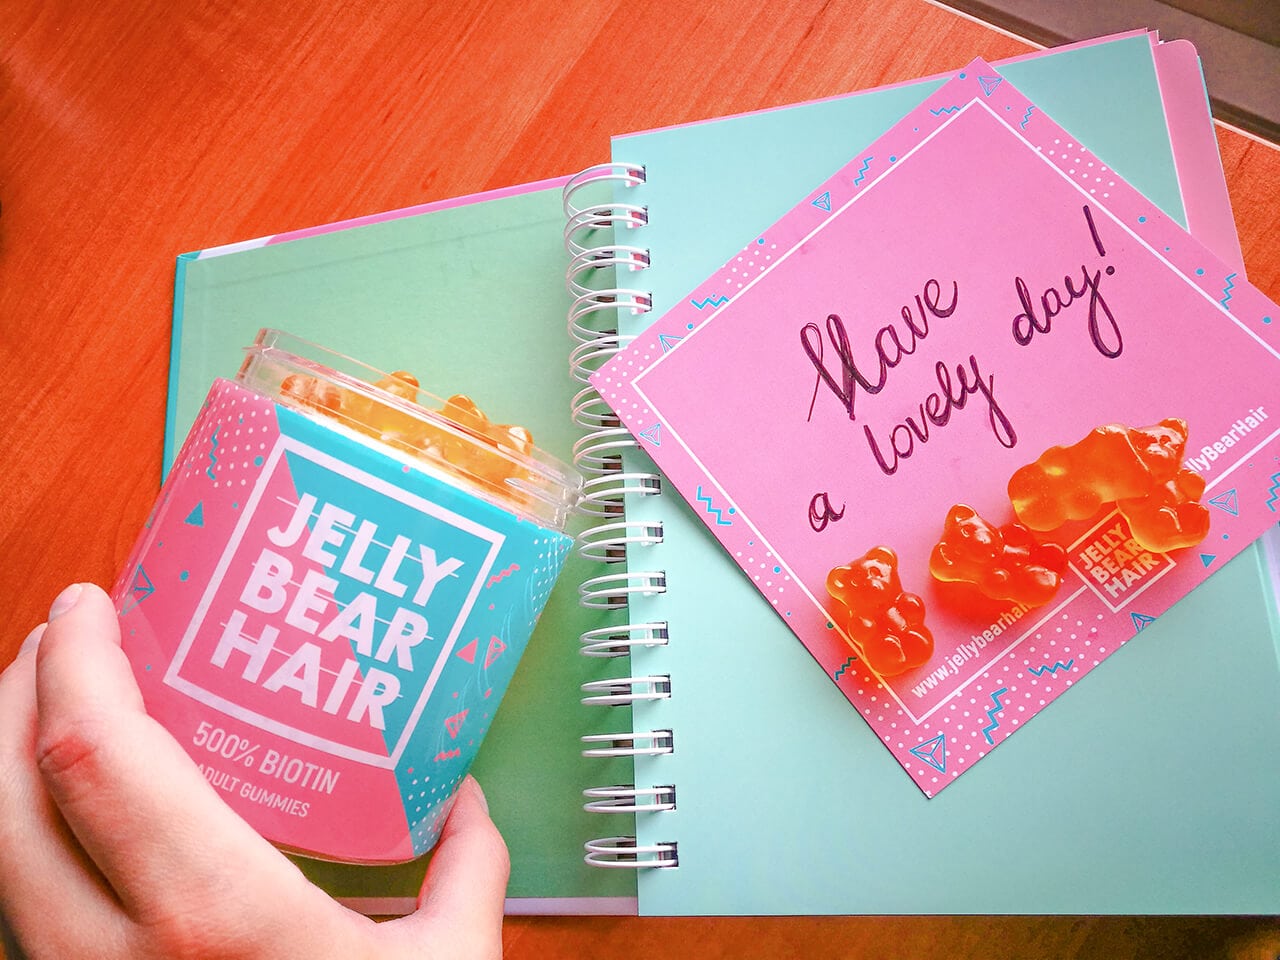 JELLY
BEAR
HAIR
500% BIOTIN
ADULT GUMMIES
Have
a lovely day!
www.jellybearhair
JELLY
BEAR
HAIR
llyBearHair